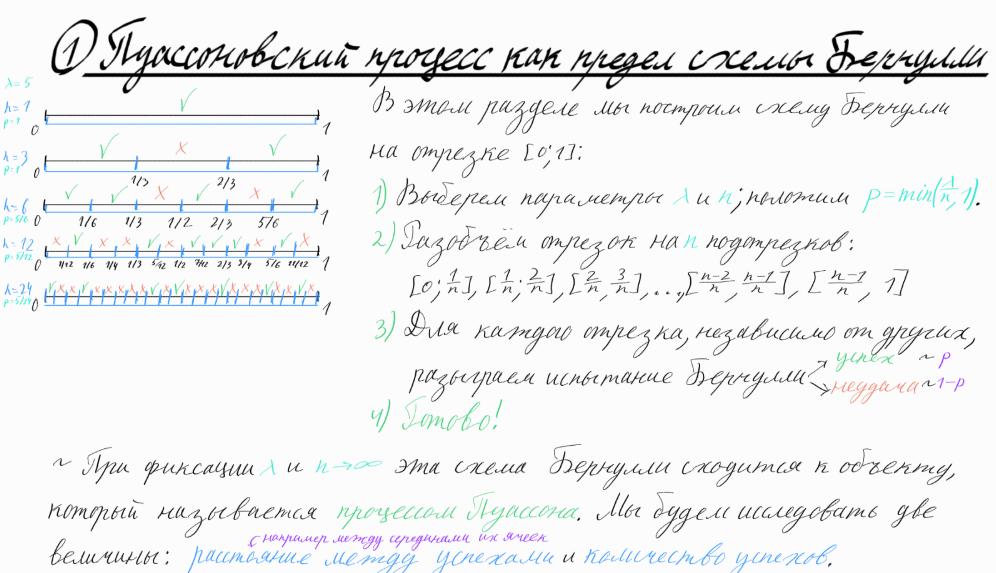 ① Пуассоновский процесс как предел схемы Бернулли
λ = 5
n = 1
p = 1
✓
0 1
n = 3
p = 1
✓ × ✓
0 1/3 2/3 1
n = 6
p = 5/6
✓ ✓ × ✓ ✓ ×
0 1/6 1/3 1/2 2/3 5/6 1
n = 12
p = 5/12
× ✓ × × ✓ × ✓ ✓ × × ✓ ×
0 1/12 1/6 1/4 1/3 5/12 1/2 7/12 2/3 3/4 5/6 11/12 1
n = 24
p = 5/24
0 1
В этом разделе мы построим схему Бернулли
на отрезке [0;1]:
1) Выберем параметры λ и n; положим p = min(λ/n, 1).
2) Разобъём отрезок на n подотрезков:
[0; 1/n], [1/n; 2/n], [2/n, 3/n], ..., [n-2/n, n-1/n], [n-1/n, 1]
3) Для каждого отрезка, независимо от других,
разыграем испытание Бернулли
успех ~ p
неудача ~ 1-p
4) Готово!
~ При фиксации λ и n→∞ эта схема Бернулли сходится к объекту,
который называется процессом Пуассона. Мы будем исследовать две
например между серединами их ячеек
величины: расстояние между успехами и количество успехов.